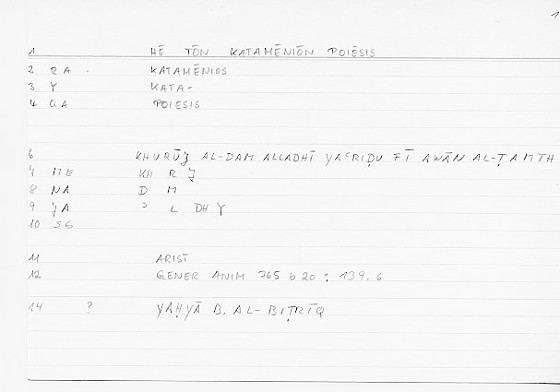 1
1 HĒ TŌN KATAMĒNIŌN POIĒSIS
2 RA . KATAMĒNIOS
3 Y KATA-
4 GA POIESIS
6 KHURŪJ AL-DAM ALLADHĪ YAʿRIḌU FĪ AWĀN AL-ṬAMTH
7 ME KH R J
8 NA D M
9 JA ʾ L DH Y
10 SG
11 ARIST
12 GENER ANIM 765 b 20 : 139.6
14 ? YAḤYĀ B. AL-BIṬRĪQ